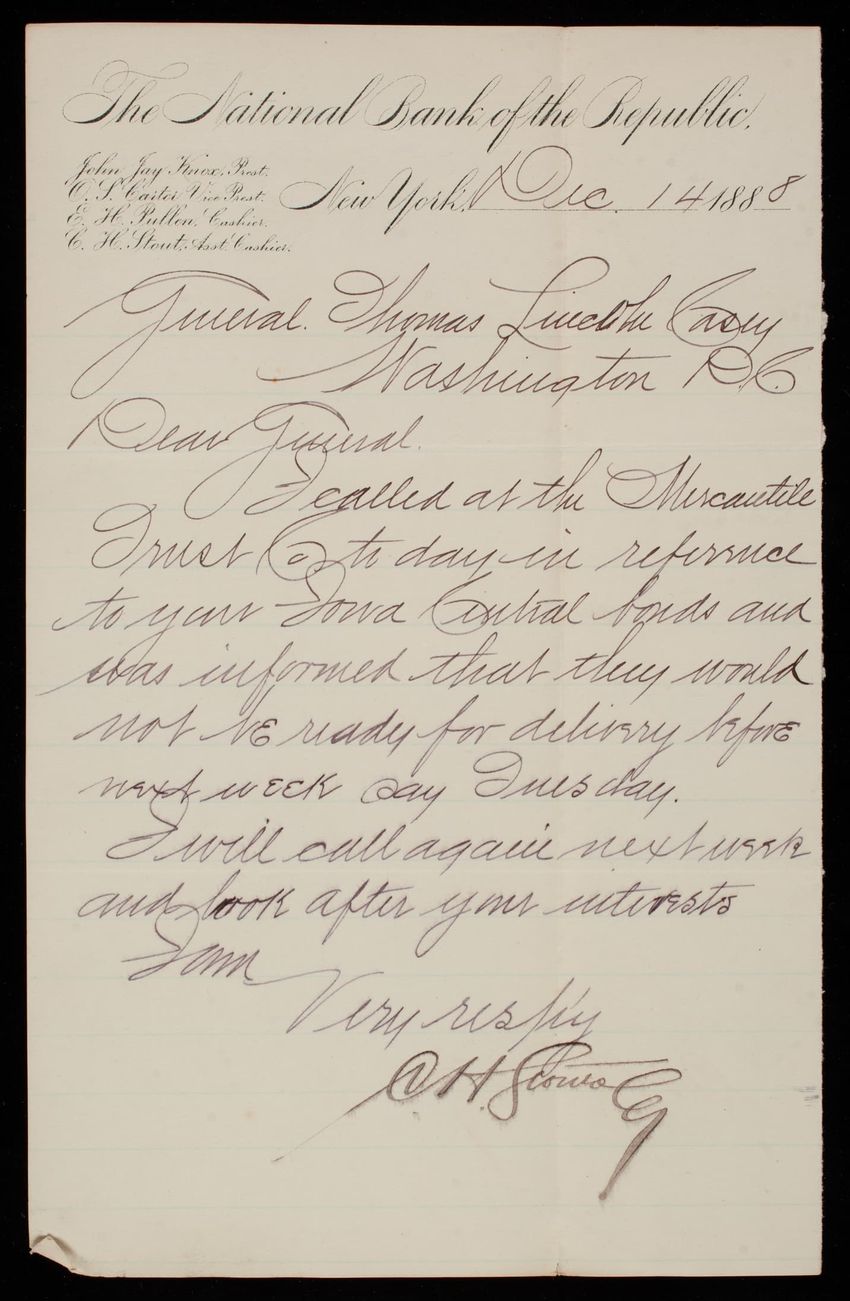 The National Bank of the Republic.
John Jay Knox, Prest.
O. S. Carter, Vice Prest.
E. H. Pullen, Cashier.
C. H. Stout, Asst. Cashier.
New York, Dec. 14 1888
General. Thomas Lincoln Casey
Washington D.C.
Dear General.
I called at the Mercantile
Trust Co to day in reference
to your Iowa Central bonds and
was informed that they would
not be ready for delivery before
next week say Tuesday.
I will call again next week
and look after your interests
I am
Very respy
C H.